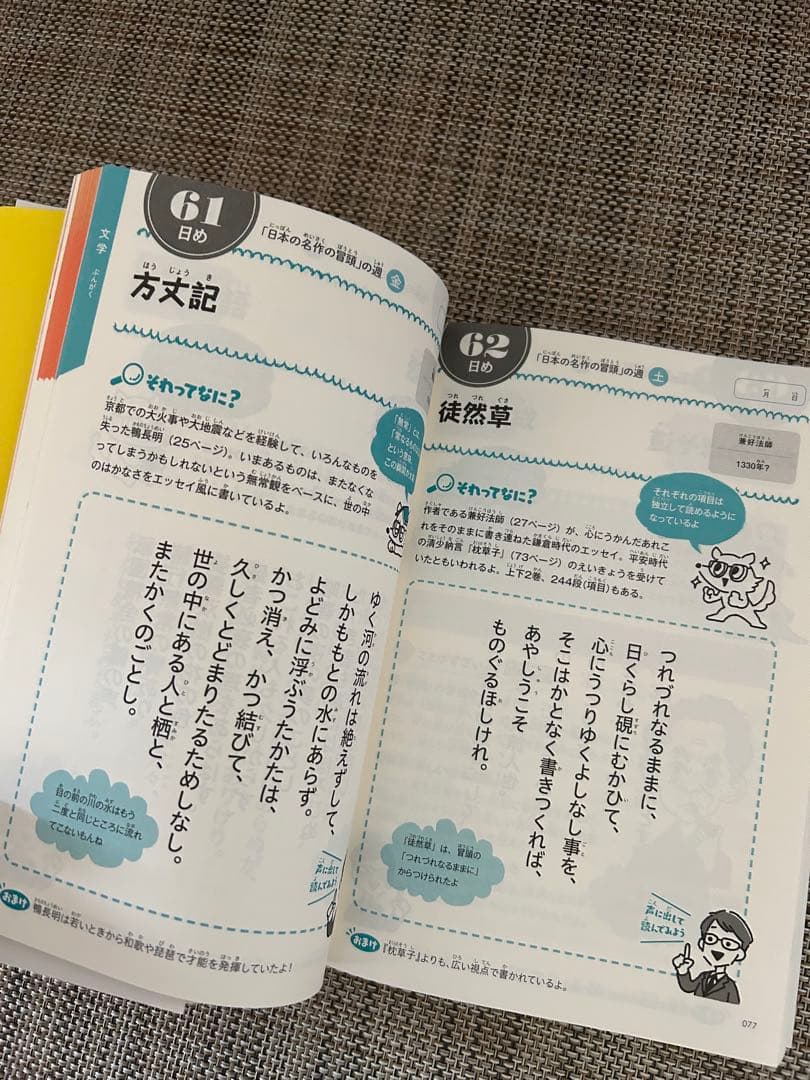 文学
ぶんがく
61
日め
「日本の名作の冒頭」の週
金
方丈記
ほうじょうき
それってなに?
京都での大火事や大地震などを経験して、いろんなものを
失った鴨長明(25ページ)。いまあるものは、またなくな
ってしまうかもしれないという無常観をベースに、世の中
のはかなさをエッセイ風に書いているよ。
ゆく河の流れは絶えずして、
しかももとの水にあらず。
よどみに浮ぶうたかたは、
かつ消え、かつ結びて、
久しくとどまりたるためしなし。
世の中にある人と栖と、
またかくのごとし。
目の前の川の水はもう
二度と同じところに流れ
てこないもんね
声に出して
読んでみよう
おまけ
鴨長明は若いときから和歌や琵琶で才能を発揮していたよ!
62
日め
「日本の名作の冒頭」の週
土
月 日
徒然草
つれづれぐさ
兼好法師
1330年?
それってなに?
作者である兼好法師(27ページ)が、心にうかんだあれこ
れをそのままに書き連ねた鎌倉時代のエッセイ。平安時代
の清少納言『枕草子』(73ページ)のえいきょうを受けて
いたともいわれるよ。上下2巻、244段(項目)もある。
それぞれの項目は
独立して読めるように
なっているよ
つれづれなるままに、
日くらし硯にむかひて、
心にうつりゆくよしなし事を、
そこはかとなく書きつくれば、
あやしうこそ
ものぐるほしけれ。
『徒然草』は、冒頭の
「つれづれなるままに」
からつけられたよ
声に出して
読んでみよう
おまけ
『枕草子』よりも、広い視点で書かれているよ。
077